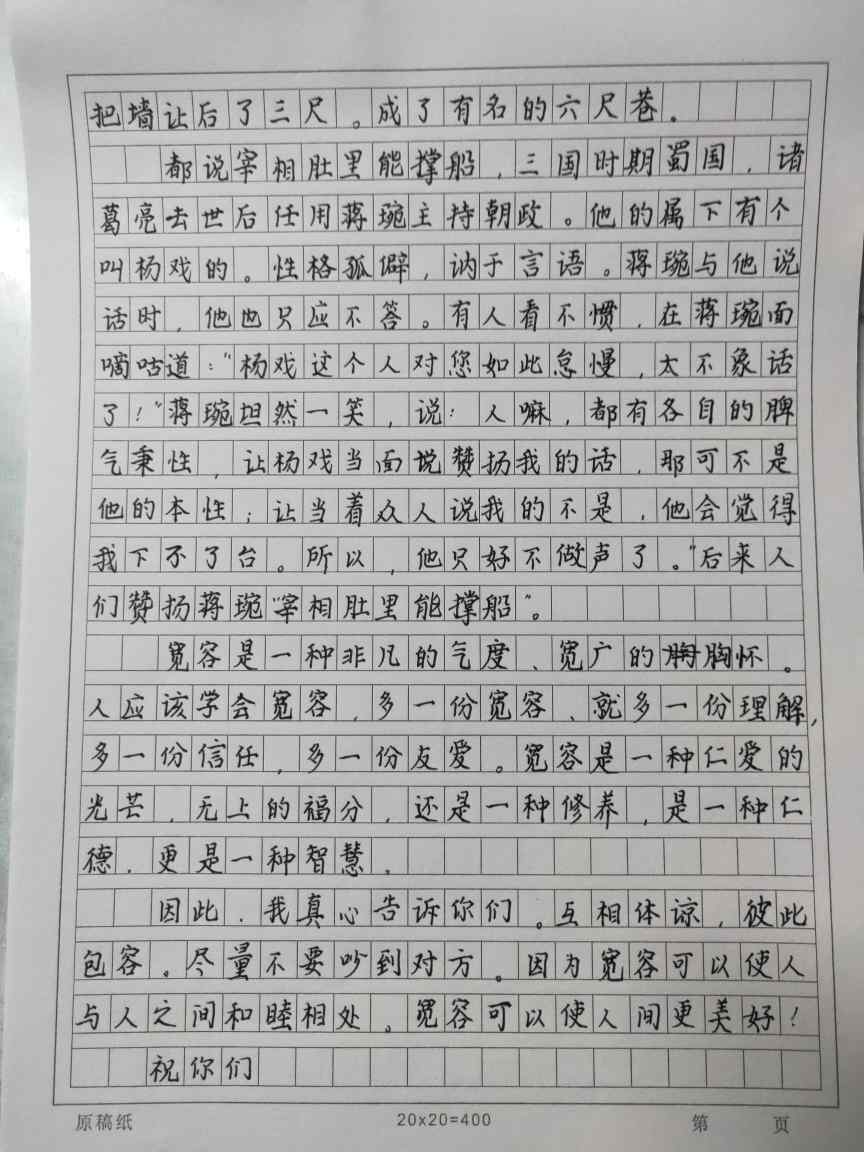 把墙让后了三尺。成了有名的六尺巷.
都说宰相肚里能撑船,三国时期蜀国,诸
葛亮去世后任用蒋琬主持朝政。他的属下有个
叫杨戏的。性格孤僻,讷于言语。蒋琬与他说
话时,他也只应不答。有人看不惯,在蒋琬面
嘀咕道:“杨戏这个人对您如此怠慢,太不象话
了!”蒋琬坦然一笑,说:人嘛,都有各自的脾
气秉性,让杨戏当面说赞扬我的话,那可不是
他的本性;让当着众人说我的不是,他会觉得
我下不了台。所以,他只好不做声了。”后来人
们赞扬蒋琬“宰相肚里能撑船”。
宽容是一种非凡的气度、宽广的胸怀。
人应该学会宽容,多一份宽容、就多一份理解,
多一份信任,多一份友爱。宽容是一种仁爱的
光芒,无上的福分,还是一种修养,是一种仁
德.更是一种智慧.
因此.我真心告诉你们。互相体谅,彼此
包容。尽量不要吵到对方。因为宽容可以使人
与人之间和睦相处。宽容可以使人间更美好!
祝你们
原稿纸 20×20=400 第 页